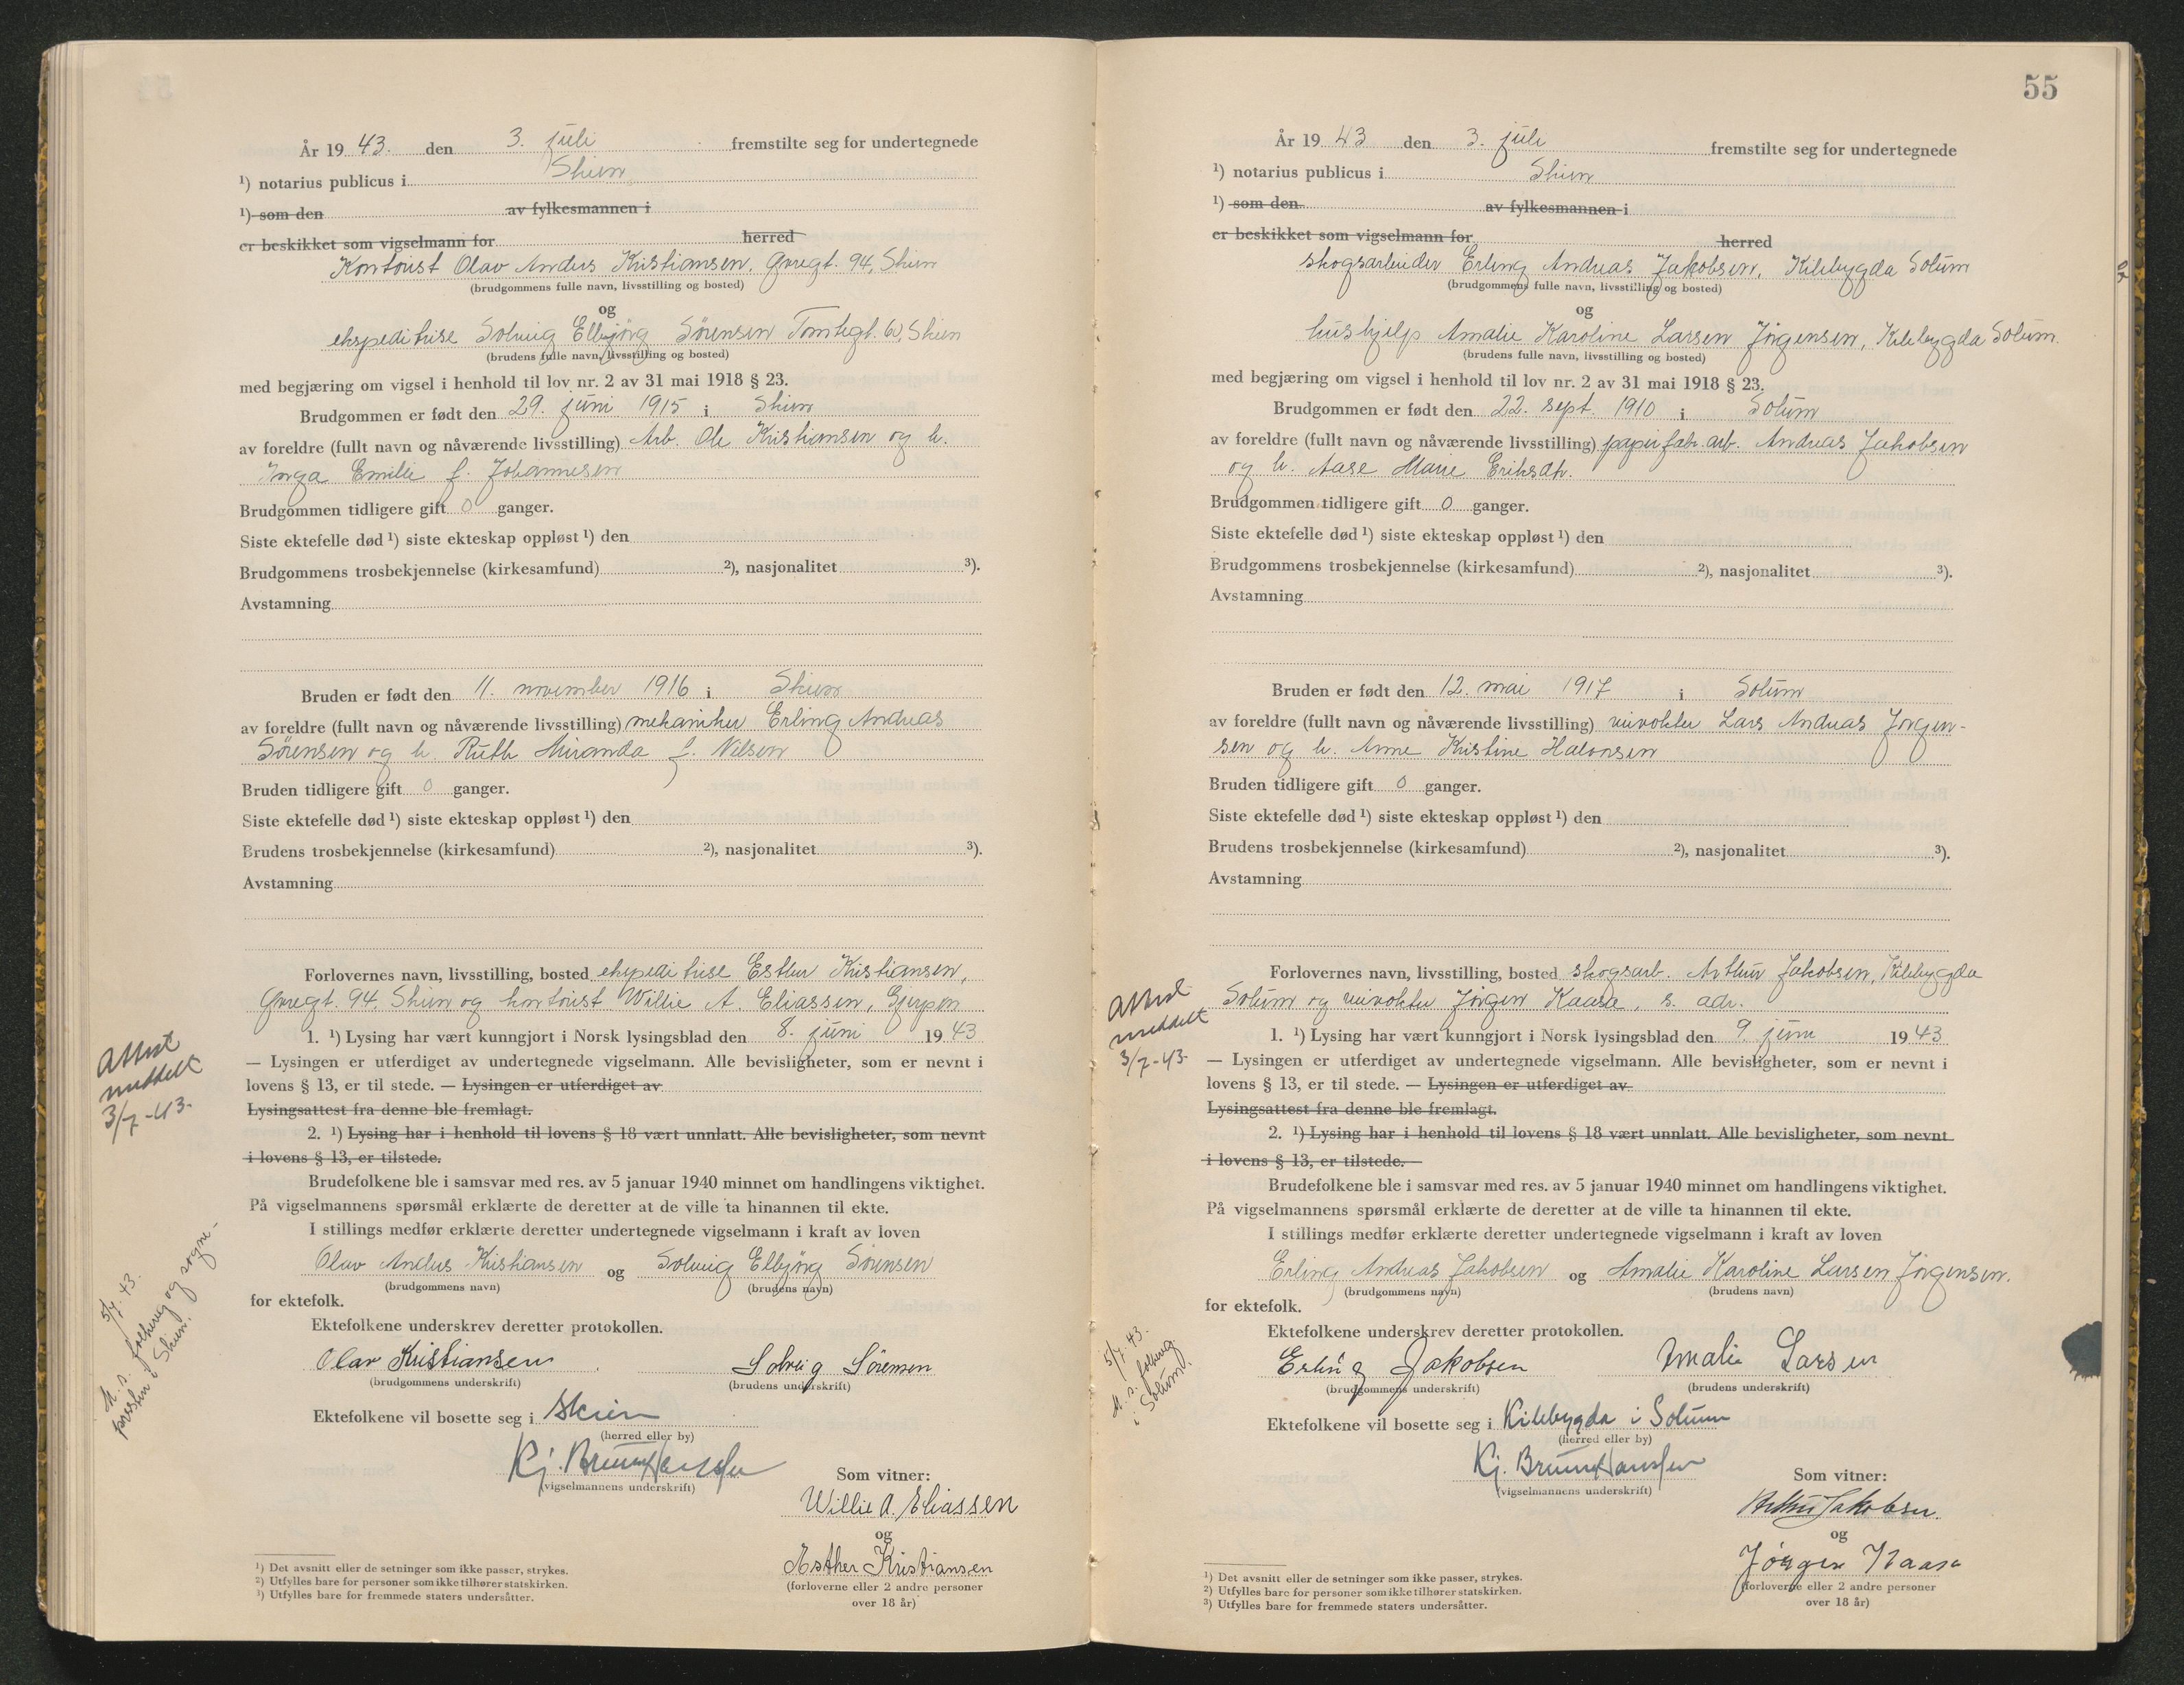 År 19 43. den 3. juli fremstilte seg for undertegnede
¹) notarius publicus i Skien
¹) som den av fylkesmannen i
er beskikket som vigselmann for herred
Kontorist Olav Anders Kristiansen, Gregt. 94, Skien
(brudgommens fulle navn, livsstilling og bosted)
og
ekspeditrise Solveig Elbjörg Sörensen Tomtegt. 60, Skien
(brudens fulle navn, livsstilling og bosted)
med begjæring om vigsel i henhold til lov nr. 2 av 31 mai 1918 § 23.
Brudgommen er født den 29. juni 1915 i Skien
av foreldre (fullt navn og nåværende livsstilling) Arb. Ole Kristiansen og h.
Inga Emilie f. Johannesen
Brudgommen tidligere gift 0 ganger.
Siste ektefelle død ¹) siste ekteskap oppløst ¹) den
Brudgommens trosbekjennelse (kirkesamfund) ²), nasjonalitet ³).
Avstamning
Bruden er født den 11. november 1916 i Skien
av foreldre (fullt navn og nåværende livsstilling) mekaniker Erling Andreas
Sörensen og h. Ruth Miranda f. Nilsen
Bruden tidligere gift 0 ganger.
Siste ektefelle død ¹) siste ekteskap oppløst ¹) den
Brudens trosbekjennelse (kirkesamfund) ²), nasjonalitet ³).
Avstamning
Forlovernes navn, livsstilling, bosted ekspeditrise Esther Kristiansen,
Gregt. 94. Skien og kontorist Willie A. Eliassen, Gjerpen
1. ¹) Lysing har vært kunngjort i Norsk lysingsblad den 8. juni 19 43
— Lysingen er utferdiget av undertegnede vigselmann. Alle bevisligheter, som er nevnt i
lovens § 13, er til stede. — Lysingen er utferdiget av
Lysingsattest fra denne ble fremlagt.
2. ¹) Lysing har i henhold til lovens § 18 vært unnlatt. Alle bevisligheter, som nevnt
i lovens § 13, er tilstede.
Brudefolkene ble i samsvar med res. av 5 januar 1940 minnet om handlingens viktighet.
På vigselmannens spørsmål erklærte de deretter at de ville ta hinannen til ekte.
I stillings medfør erklærte deretter undertegnede vigselmann i kraft av loven
Olav Anders Kristiansen og Solveig Elbjörg Sörensen
(brudgommens navn) (brudens navn)
for ektefolk.
Ektefolkene underskrev deretter protokollen.
Olav Kristiansen Solveig Sörensen
(brudgommens underskrift) (brudens underskrift)
Ektefolkene vil bosette seg i Skien
(herred eller by)
Kj. Bruun Hanssen
(vigselmannens underskrift)
Som vitner:
Willie A. Eliassen
og
Esther Kristiansen
(forloverne eller 2 andre personer
over 18 år)
¹) Det avsnitt eller de setninger som ikke passer, strykes.
²) Utfylles bare for personer som ikke tilhører statskirken.
³) Utfylles bare for fremmede staters undersåtter.
Attest
meddelt
3/7-43.
5/7.43.
M. s. folkereg og sogne-
presten i Skien.
55
År 19 43 den 3. juli fremstilte seg for undertegnede
¹) notarius publicus i Skien
¹) som den av fylkesmannen i
er beskikket som vigselmann for herred
skogsarbeider Erling Andreas Jakobsen, Kilebygda Solum
(brudgommens fulle navn, livsstilling og bosted)
og
hushjelp Amalie Karoline Larsen Jörgensen, Kilebygda Solum.
(brudens fulle navn, livsstilling og bosted)
med begjæring om vigsel i henhold til lov nr. 2 av 31 mai 1918 § 23.
Brudgommen er født den 22. sept. 1910 i Solum
av foreldre (fullt navn og nåværende livsstilling) papirfabr. arb. Andreas Jakobsen
og h. Aase Marie Eriksdtr.
Brudgommen tidligere gift 0 ganger.
Siste ektefelle død ¹) siste ekteskap oppløst ¹) den
Brudgommens trosbekjennelse (kirkesamfund) ²), nasjonalitet ³).
Avstamning
Bruden er født den 12. mai 1917 i Solum
av foreldre (fullt navn og nåværende livsstilling) veivokter Lars Andreas Jörgen-
sen og h. Anne Kristine Halvorsen
Bruden tidligere gift 0 ganger.
Siste ektefelle død ¹) siste ekteskap oppløst ¹) den
Brudens trosbekjennelse (kirkesamfund) ²), nasjonalitet ³).
Avstamning
Forlovernes navn, livsstilling, bosted skogsarb. Arthur Jakobsen, Kilebygda
Solum og veivokter Jörgen Kaasa, s. adr.
1. ¹) Lysing har vært kunngjort i Norsk lysingsblad den 9. juni 19 43
— Lysingen er utferdiget av undertegnede vigselmann. Alle bevisligheter, som er nevnt i
lovens § 13, er til stede. — Lysingen er utferdiget av
Lysingsattest fra denne ble fremlagt.
2. ¹) Lysing har i henhold til lovens § 18 vært unnlatt. Alle bevisligheter, som nevnt
i lovens § 13, er tilstede. —
Brudefolkene ble i samsvar med res. av 5 januar 1940 minnet om handlingens viktighet.
På vigselmannens spørsmål erklærte de deretter at de ville ta hinannen til ekte.
I stillings medfør erklærte deretter undertegnede vigselmann i kraft av loven
Erling Andreas Jakobsen og Amalie Karoline Larsen Jörgensen.
(brudgommens navn) (brudens navn)
for ektefolk.
Ektefolkene underskrev deretter protokollen.
Erling Jakobsen Amalie Larsen
(brudgommens underskrift) (brudens underskrift)
Ektefolkene vil bosette seg i Kilebygda i Solum
(herred eller by)
Kj. Bruun Hanssen
(vigselmannens underskrift)
Som vitner:
Arthur Jakobsen.
og
Jørgen Kaasa
(forloverne eller 2 andre personer
over 18 år)
¹) Det avsnitt eller de setninger som ikke passer, strykes.
²) Utfylles bare for personer som ikke tilhører statskirken.
³) Utfylles bare for fremmede staters undersåtter.
Attest
meddelt
3/7-43.
5/7.43.
M. s. folkereg.
i Solum.